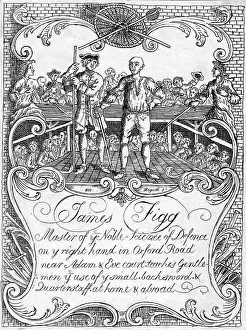 James Figg
Master of yͤ Noble Science of Defence
on yͤ right hand in Oxford Road
near Adam & Eve court teaches Gentle-
men yͤ use of yͤ small backsword &
Quarterstaff at home & abroad